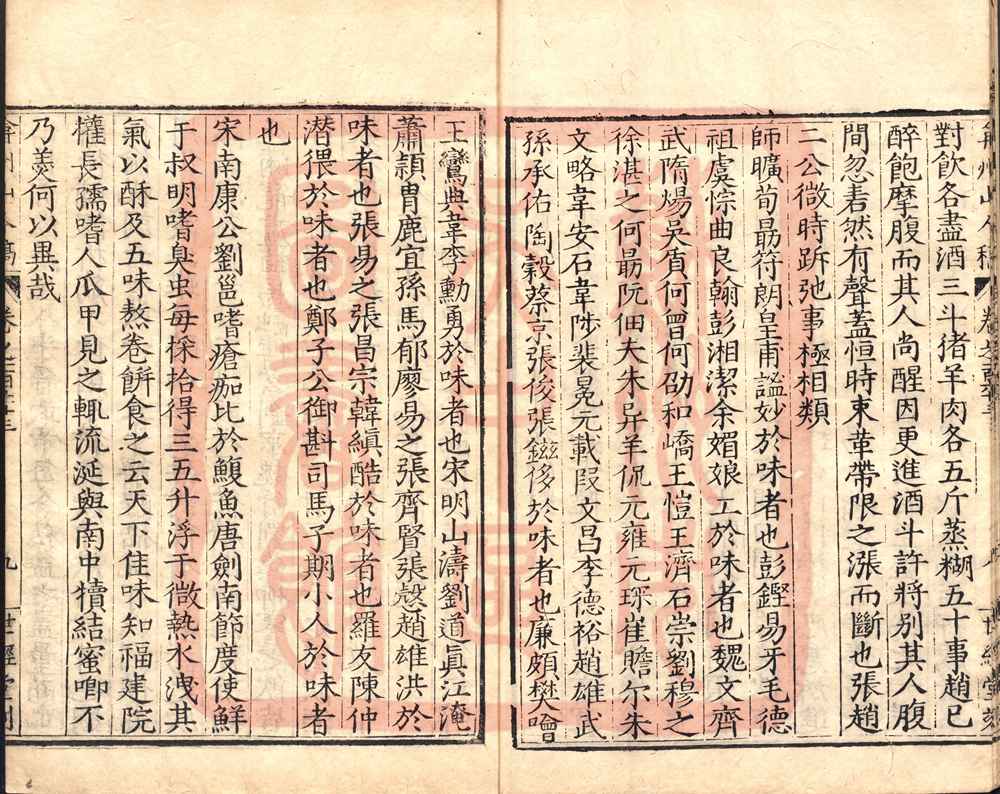 對飲各盡酒三斗猪羊肉各五斤蒸糊五十事趙已
醉飽摩腹而其人尚醒因更進酒斗許將別其人腹
間忽砉然有聲蓋恒時束革帶限之漲而斷也張趙
二公微時跅弛事極相類
師曠荀朂符朗皇甫謐妙於味者也彭鏗易牙毛德
祖虞悰曲良翰彭湘潔余媚娘工於味者也魏文齊
武隋煬吳賀何曾何劭和嶠王愷王濟石崇劉穆之
徐湛之何朂阮佃夫朱异羊侃元雍元琛崔贍尔朱
文略韋安石韋陟裴冕元載叚文昌李德裕趙雄武
孫承佑陶穀蔡京張俊張鎡侈於味者也廉頗樊噲
王鸞典韋李勳勇於味者也宋明山濤劉道眞江淹
蕭頴胄鹿宜孫馬郁廖易之張齊賢張瑴趙雄洪於
味者也張易之張昌宗韓縝酷於味者也羅友陳仲
潜猥於味者也鄭子公御斟司馬子期小人於味者
也
宋南康公劉邕嗜瘡痂比於鰒魚唐劍南節度使鮮
于叔明嗜臭虫每採拾得三五升浮于微熱水洩其
氣以酥及五味熬卷餅食之云天下佳味知福建院
權長孺嗜人爪甲見之輒流涎與南中獖結蜜唧不
乃羙何以異哉
弇州山人稿
九
世經堂刻